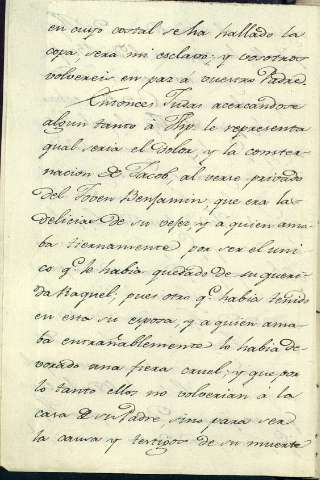 en cuyo costal se ha hallado la
copa será mi esclavo; y vosotros
volvereis en paz á vuestro Padre.
Entonces Judas acercandose
algun tanto á Thp. le representa
qual seria el dolor, y la conster-
nacion de Jacob, al verse privado
del Joven Benjamin, que era las
delicias de su vejez, y á quien ama-
ba tiernamente por ser el uni-
co q.e le habia quedado de su queri-
da Raquel; pues otro q.e habia tenido
en esta su esposa, y a quien ama-
ba entrañablemente lo habia de-
vorado una fiera cruel; y que por
lo tanto ellos no volverian á la
casa de su Padre, sino para ser
la causa y testigos de su muerte